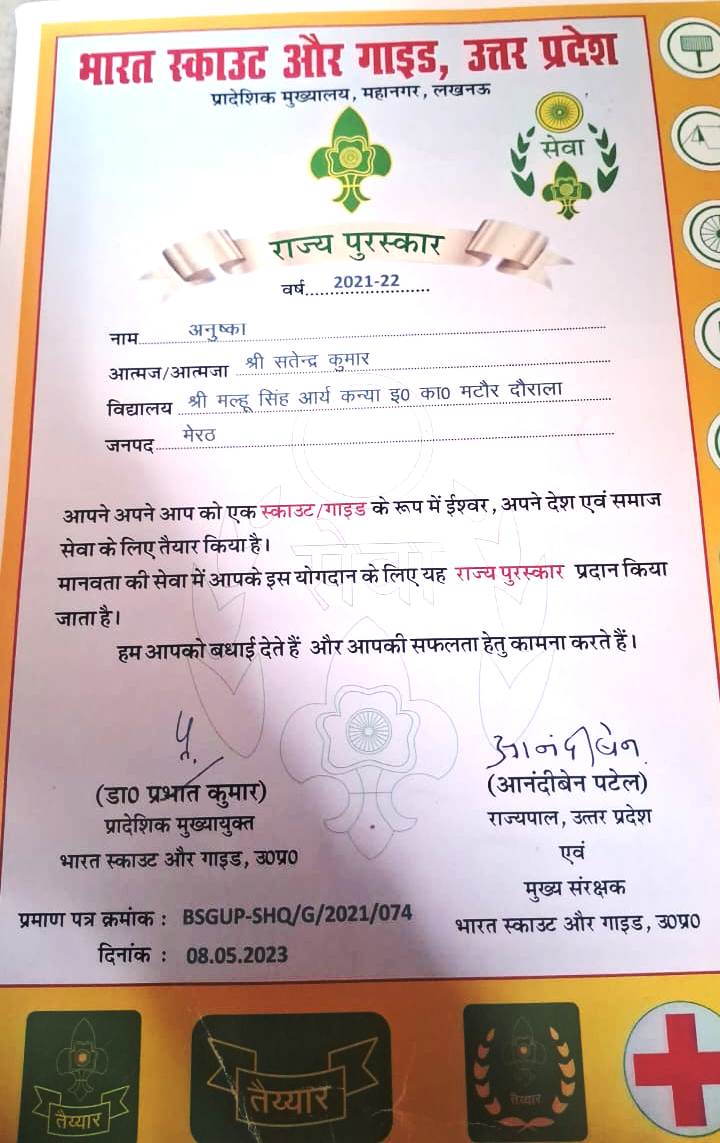 भारत स्काउट और गाइड, उत्तर प्रदेश
प्रादेशिक मुख्यालय, महानगर, लखनऊ
सेवा
राज्य पुरस्कार
वर्ष......2021-22......
नाम अनुष्का
आत्मज/आत्मजा श्री सतेन्द्र कुमार
विद्यालय श्री मल्हू सिंह आर्य कन्या इ0 का0 मटौर दौराला
जनपद मेरठ
आपने अपने आप को एक स्काउट/गाइड के रूप में ईश्वर, अपने देश एवं समाज
सेवा के लिए तैयार किया है।
मानवता की सेवा में आपके इस योगदान के लिए यह राज्य पुरस्कार प्रदान किया
जाता है।
हम आपको बधाई देते हैं और आपकी सफलता हेतु कामना करते हैं।
सेवा
आनंदीबेन
(डा0 प्रभात कुमार)
प्रादेशिक मुख्यायुक्त
भारत स्काउट और गाइड, उ0प्र0
(आनंदीबेन पटेल)
राज्यपाल, उत्तर प्रदेश
एवं
मुख्य संरक्षक
भारत स्काउट और गाइड, उ0प्र0
प्रमाण पत्र क्रमांक : BSGUP-SHQ/G/2021/074
दिनांक : 08.05.2023
तैय्यार
तैय्यार
तैय्यार